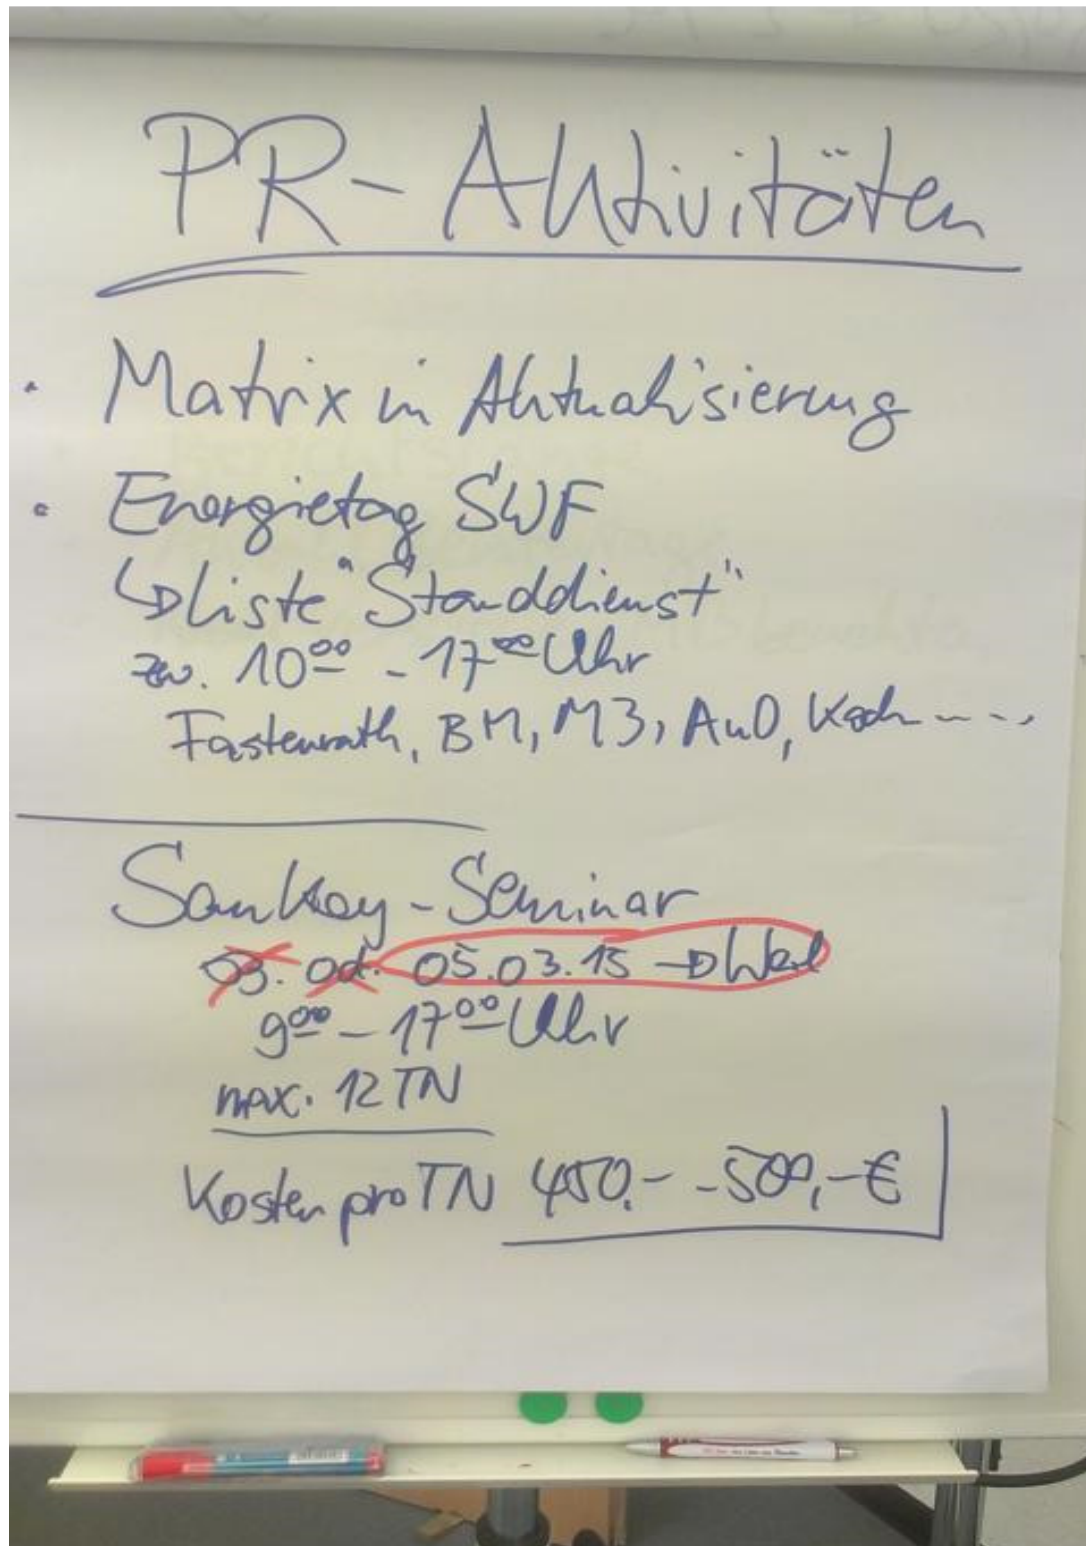 PR-Aktivitäten
· Matrix in Aktualisierung
· Energietag SWF
↳ Liste "Standdienst"
zw. 10⁰⁰ - 17⁰⁰ Uhr
Fastenrath, BM, M3, AuD, Koch ----
Sankey-Seminar
03. od. 05.03.15 → Werl
9⁰⁰ - 17⁰⁰ Uhr
max. 12 TN
Kosten pro TN 450,- - 500,- €